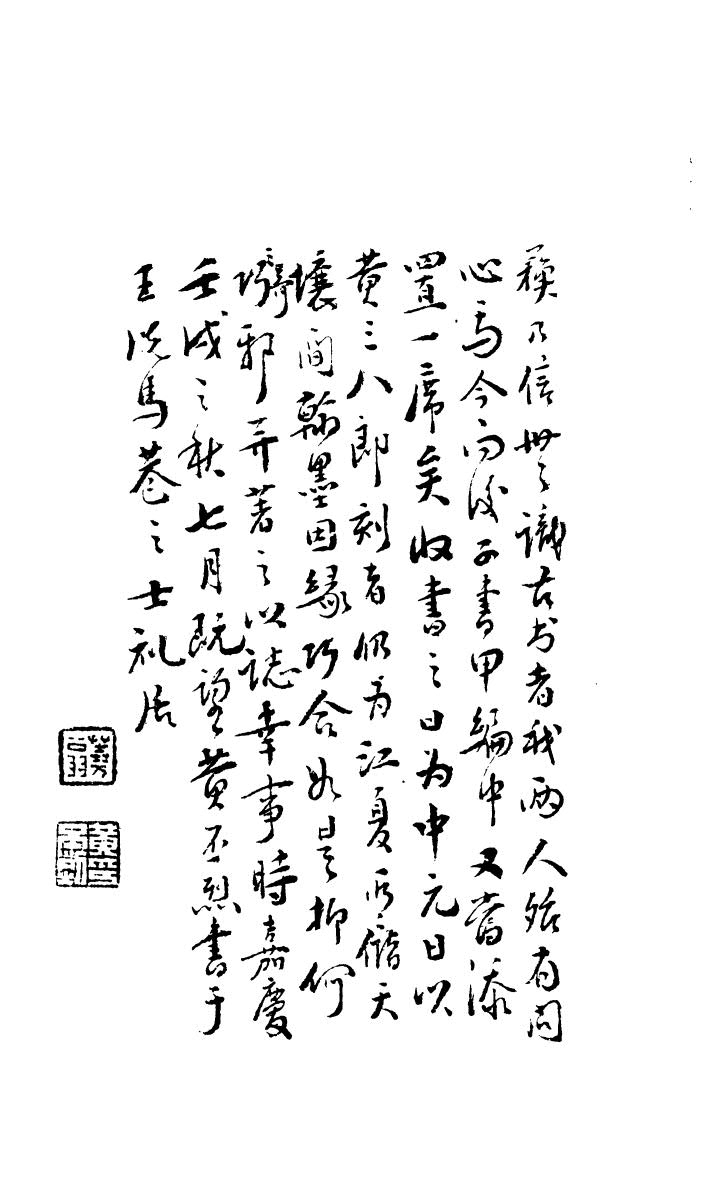 藐乃信世之識古书者我兩人殆有同
心焉今而後子書甲編中又當添
置一席矣收書之日为中元日以
黄三八郎刻者仍为江夏所儲天
壤间翰墨因缘巧合如是抑何
奇邪并著之以誌幸事時嘉慶
壬戌之秋七月既望黄丕烈書于
王洗馬巷之士礼居
蕘翁
黄丕烈